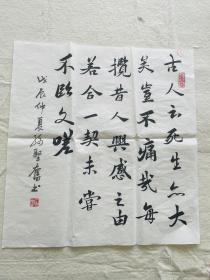 古人云死生亦大
矣豈不痛哉每
攬昔人興感之由
若合一契未嘗
不臨文嗟
戊辰仲夏聖奮书